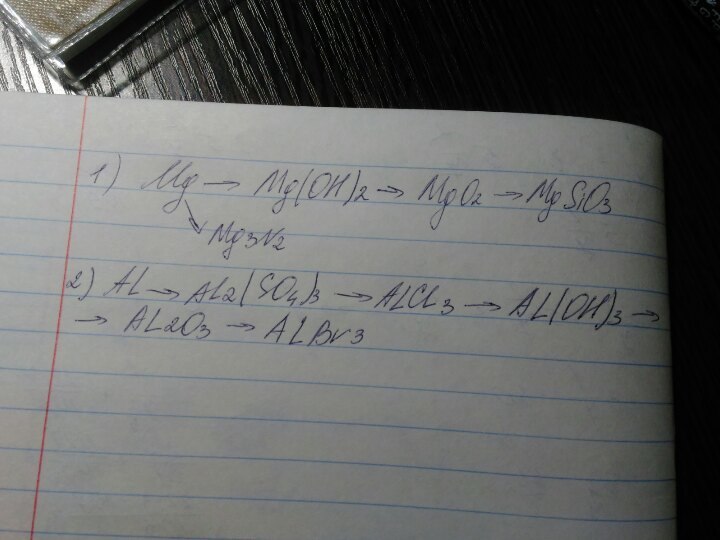 1) Mg → Mg(OH)2 → MgO2 → MgSiO3
↘ Mg3N2
2) AL → AL2(SO4)3 → ALCL3 → AL(OH)3 →
→ AL2O3 → ALBr3